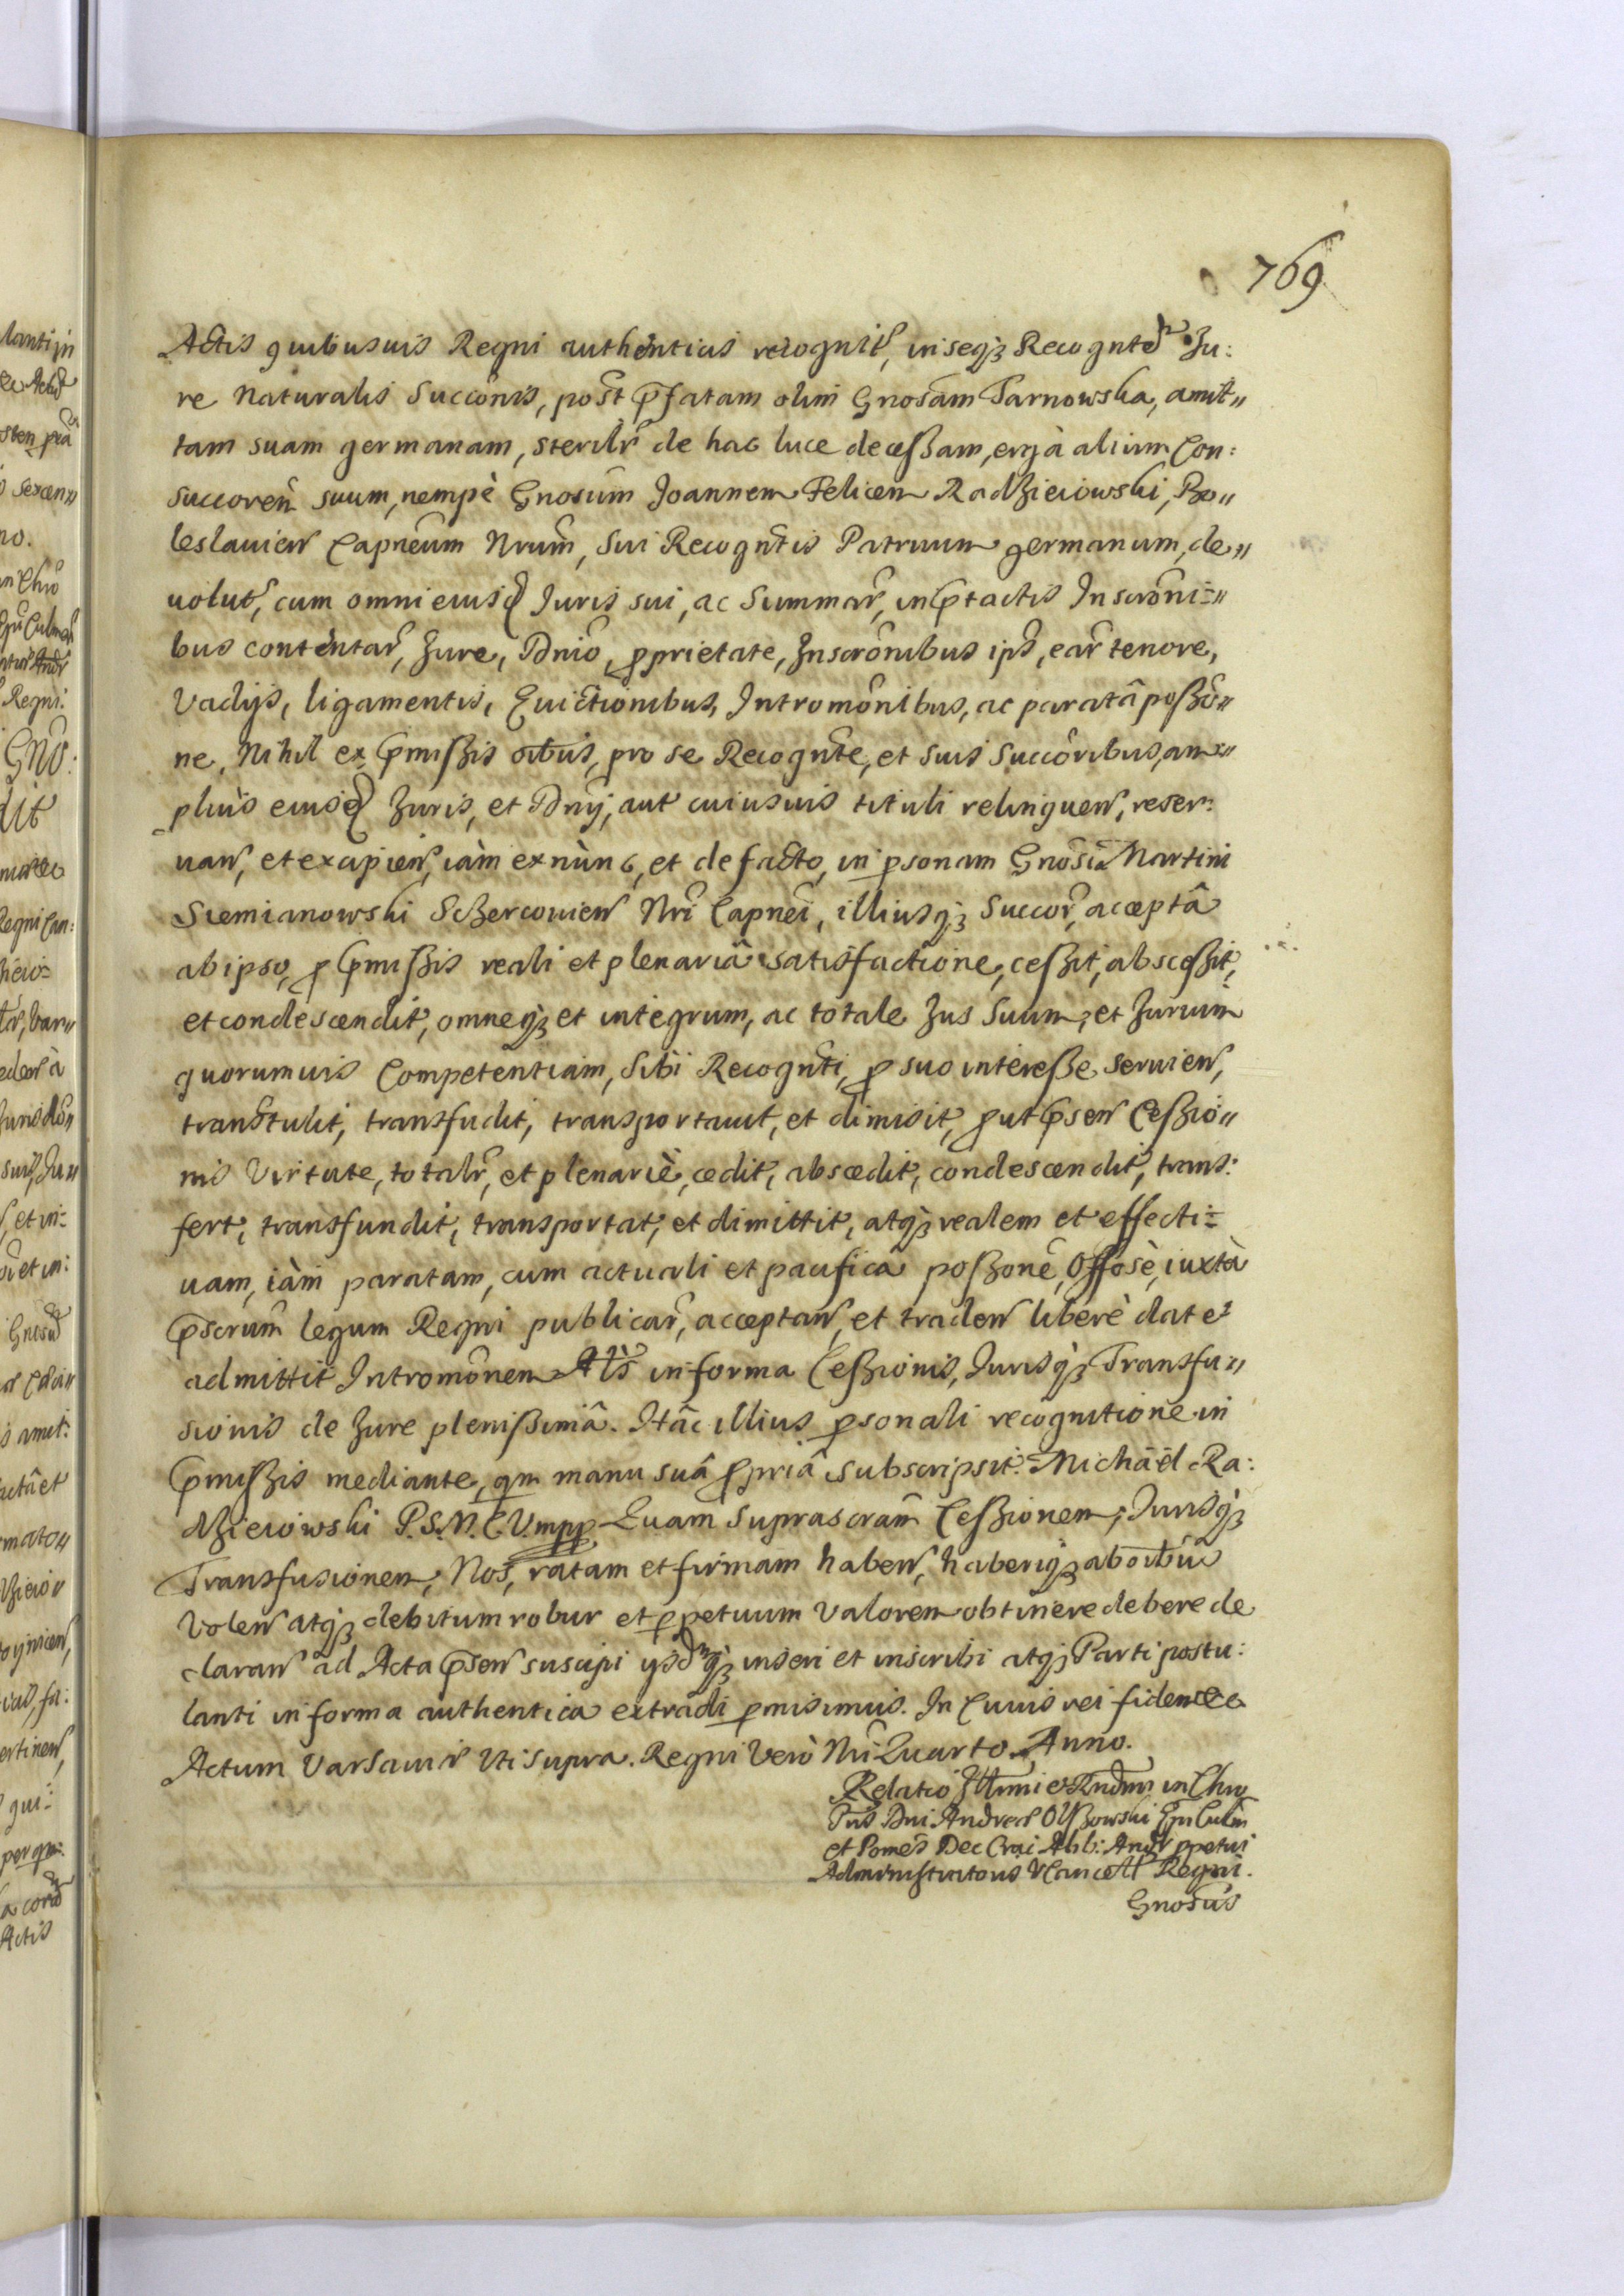 769
Actis quibusuis Regni authenticis recognit, inseq3 Recognten Iu:
re Naturalis Succonis, post pfatam olim Gnosam Tarnowska, amit„
tam suam germanam, sterilr de hac luce decessam, ergà alium Con:
succorem suum, nempè Gnosum Joannem Felicem Radzieiowski, Bo„
leslauien Capneum Nrum, Sui Recogntis Patruum germanum, de„
uolut, cum omni eiusd Iuris sui, ac Summar, in ptactis Inscroni=„
bus contentar, Iure, Dnio, pprietate, Inscronibus ips, ear tenore,
Vadijs, ligamentis, Euictionibus, Intromonibus, ac paratâ posso„
ne, Nihil ex pmissis oibus, pro se Recognte, et suis Succoribus, am„
pliùs eiusd Iuris, et Dnij, aut cuiusuis tituli relinquen, reser:
uan, et excipien, iàm ex nùnc, et de facto, in psonam Gnosi Martini
Siemianowski Szercouien Nri Capnei, illiusq3 Succor, acceptâ
ab ipso, p pmissis reali et plenariâ satisfactione, cessit, abscessit,
et condescendit, omneq3 et integrum, ac totale Ius Suum, et Iurium
quorumuis Competentiam, Sibi Recognti, p suo interesse seruien,
transtulit, transfudit, transportauit, et dimisit, put psen Cessio„
nis Virtute, totalr, et plenariè, cedit, abscedit, condescendit, trans:
fert, transfundit, transportat, et dimittit, atq3 realem et effecti=
uam, iàm paratam, cum actuali et pacifica possone, Offose, iuxtà
pscrum legum Regni publicar, acceptan, et traden liberè dat et
admittit Intromonem Als in forma Cessionis, Jurisq3 Transfu„
sionis de Iure plenissimâ. Hâc illius psonali recognitione in
pmissis mediante, qm manu suâ ppriâ subscripsit. Michaël Ra:
dzieiowski P.S.N.C.V. mpp Quam suprascram Cessionem, Jurisq3
Transfusionem, Nos, ratam et firmam haben, haberiq3 ab oibus
Volen atq3 debitum robur et ppetuum Valorem obtinere debere de
claran ad Acta psen suscipi ysdmq3 inseri et inscribi atq3 Parti postu:
lanti in forma authentica extradi pmisimus. In Cuius rei fidem
Actum Varsauiæ Vti supra. Regni Verò Nri Quarto Anno.
Relatio Illmi et Rndmi in Chro
Pris Dni Andreæ Olszowski Epi Culm
et Pomes Dec Crac Abb: Andr ppetui
Administratoris VCancell Regni.
Gnosus